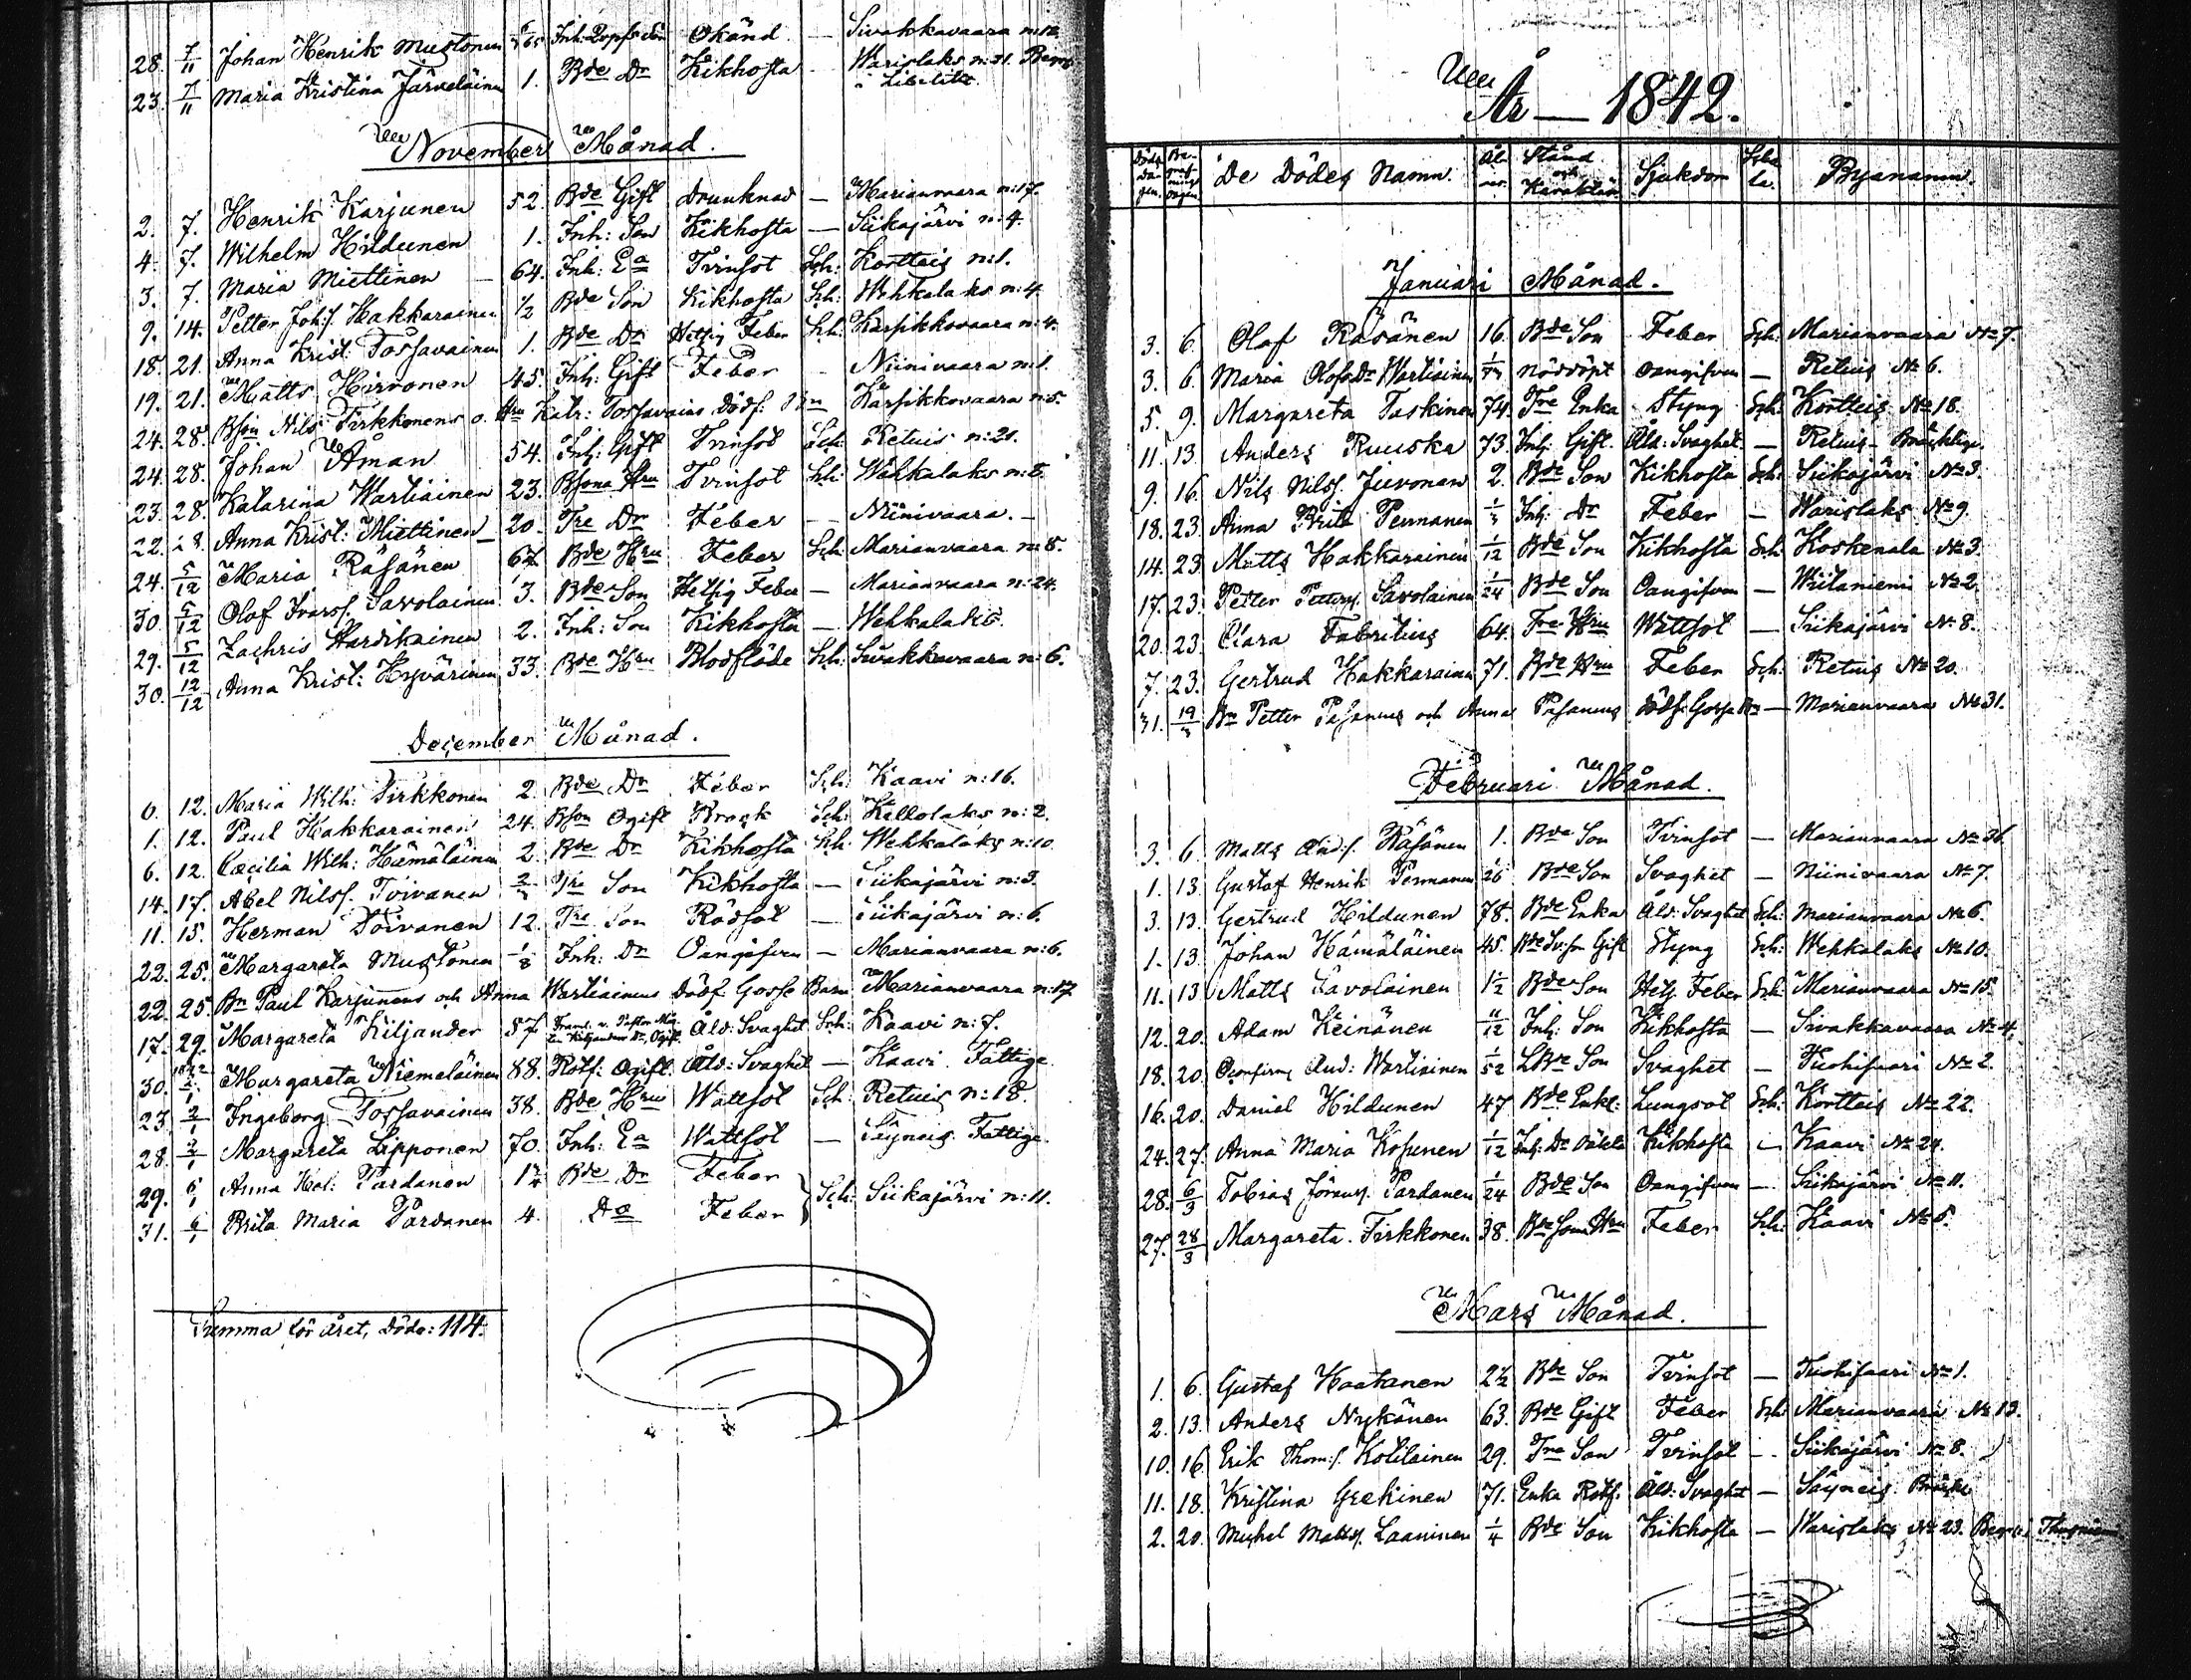 28. 7/11 Johan Henrik Mustonen Inh: Okänd — Sivakkavaara n:12
23. 7/11 Maria Kristina Järveläinen 1. Bde Dr Kikhosta - Warislaks n:31.
i Libelits.
November Månad.
2. 7. Henrik Karjunen 52. Bde Gift Drunknad — Marianvaara n:17.
4. 7. Wilhelm Hildunen 1. Inh: Son Kikhosta — Siikajärvi n:4.
3. 7. Maria Miettinen — 64. Inh: Ea Tvinsot Sch: Kortteis n:1.
9. 14. Petter Joh:s. Hakkarainen ½ Bde Son Kikhosta Sch: Wehkalaks n:4.
18. 21. Anna Krist: Tossavainen 1. Bde Dr Hetsig Feber Sch: Karsikkovaara n:4.
19. 21. Matts Hirvonen 45. Inh: Gift Feber - Niinivaara n:1.
24. 28. Bson Nils Pirkkonens o. Hru Katr: Tossavains Dödf: Bn Karsikkovaara n:5.
24. 28. Johan Åman 54. Inh: Gift Tvinsot Sch: Retuis n:21.
23. 28. Katarina Wartiainen 23. Bsons Hru Tvinsot Sch: Wehkalaks n:5.
22. 28. Anna Krist: Miettinen 20. Tre Dr Feber — Niinivaara. —
24. 5/12 Maria Räsänen 67 Bde Hru Feber Sch: Marianvaara n:8.
30. 5/12 Olof Ivarss. Savolainen 3. Bde Son Hetsig Feber — Marianvaara n:24.
29. 5/12 Zachris Hardikainen 2. Inh: Son Kikhosta — Wehkalaks.
30. 12/12 Anna Krist: Hyvärinen 33. Bde Hru Blodflöde Sch: Sivakkavaara n:6.
December Månad.
6. 12. Maria Wilh: Pirkkonen 2. Bde Dr Feber Sch: Kaavi n:16.
1. 12. Paul Hakkarainen 24. Bson Ogift Brock Sch: Kellolaks n:2.
6. 12. Cæcilia Wilh: Hämäläinen 2. Bde Dr Kikhosta Sch: Wehkalaks n:10
14. 17. Abel Nilss. Toivanen Tre Son Kikhosta — Siikajärvi n:3.
11. 15. Herman Toivanen 12. Tre Son Rödsot — Siikajärvi n:6.
22. 25. Margareta Mustonen 1/8 Inh: Dr Oangifven — Marianvaara n:6.
22. 25 Bn Paul Karjunens och Anna Wartiainens Dödf. Gosse Barn Marianvaara n:17
17. 29. Margareta Kiljander 57 Åld: Svaghet Sch: Kaavi n:7.
30. 2/1 Margareta Niemeläinen 88. Rotf: Ogift Åld: Svaghet — Kaavi Fattige
23 2/1 Ingeborg Tossavainen 38. Bde Hru Wattsot Sch: Retuis n:18.
28. 2/1 Margareta Lipponen 70. Inh: Ea Wattsot — Säyneis Fattige.
29. 6/1 Anna Hel: Pardanen Bde Dr Feber
31. 6/1 Brita Maria Pardanen 4. Do Feber Sch: Siikajärvi n:11.
Summa för året, Döde: 114.
År — 1842.
Döds Dagen. Begrafnings dagen De Dödes Namn. Stånd och Karaktär Sjukdom Byanamn.
Januari Månad.
3. 6. Olof Räsänen 16. Bde Son Feber Sch: Marianvaara No 7.
3. 6. Maria Olofs Dr Wartiainen nöddöpt Oangifven — Retuis No 6.
5. 9. Margareta Taskinen 74. Tre Enka Styng Sch: Kortteis No 18.
11. 13. Anders Ruuska 73. Inh: Gift. Åld: Svaghet — Retuis - Bräcklige.
9. 16. Nils Nilss. Juvonen 2. Bde Son Kikhosta Sch: Siikajärvi No 3.
18. 23. Anna Brita Pennanen Inh: Dr Feber — Warislaks No 9.
14. 23. Matts Hakkarainen 1/12 Bde Son Kikhosta Sch: Koskenala No 3.
17. 23. Petter Petterss. Savolainen 1/24 Bde Son Oangifven — Wiitaniemi No 2.
20. 23. Clara Fabritius 64. Hru Wattsot — Siikajärvi No 8.
7. 23. Gertrud Hakkarainen 71. Bde Hru Feber Sch: Retuis No 20.
31. Bn Petter Pasanens och Anna Pasanens Dödf: Gosse Bn — Marianvaara No 31.
Februari Månad.
3. 6. Matts And:s. Räsänen 1. Bde Son Tvinsot — Marianvaara No 36.
1. 13. Gustaf Henrik Pennanen Bde Son Svaghet — Niinivaara No 7.
3. 13. Gertrud Hildunen 78. Bde Enka Åld: Svaghet Sch: Marianvaara No 6.
1. 13. Johan Hämäläinen 45. Gift Styng Sch: Wehkalaks No 10.
11. 13. Matts Savolainen 1½ Bde Son Hets. Feber Sch: Marianvaara No 15.
12. 20. Adam Keinänen 11/12 Inh: Son Kikhosta — Sivakkavaara No 4.
18. 20. And: Wartiainen 1/52 Son Svaghet — Tuohisaari No 2.
16. 20. Daniel Hildunen 47. Bde Enkl: Lungsot Sch: Kortteis No 22.
24. 27. Anna Maria Kosunen 1/12 Inh: Dr Oäkta Kikhosta — Kaavi No 24.
28. 6/3 Tobias Pardanen 1/24 Bde Son Oangifven — Siikajärvi No 11.
27. 28/3 Margareta Pirkkonen 38. Bde Sons Hru Feber Sch: Kaavi No 5.
Mars Månad.
1. 6. Gustaf Kaatanen 2½ Bde Son Tvinsot — Tuohisaari No 1.
2. 13. Anders Nykänen 63. Bde Gift Feber Sch: Marianvaara No 13.
10. 16 Erik Thom:s. Kotilainen 29. Tre Son Tvinsot — Siikajärvi No 8.
11. 18. Kristina Grekinen 71. Enka Rotf. Åld: Svaghet — Säyneis
2. 20. Michel Matts. Laaninen 1/4 Bde Son Kikhosta — Warislaks No 23.